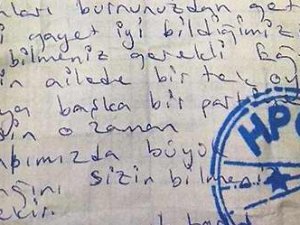 ları burnunuzdan get
i gayet iyi bildiğimizi
bilmeniz gerekli
in ailede bir tek oy
ya başka bir parti
din o zaman
apımızda büyü
sizin bilmeniz
ekir
HPG